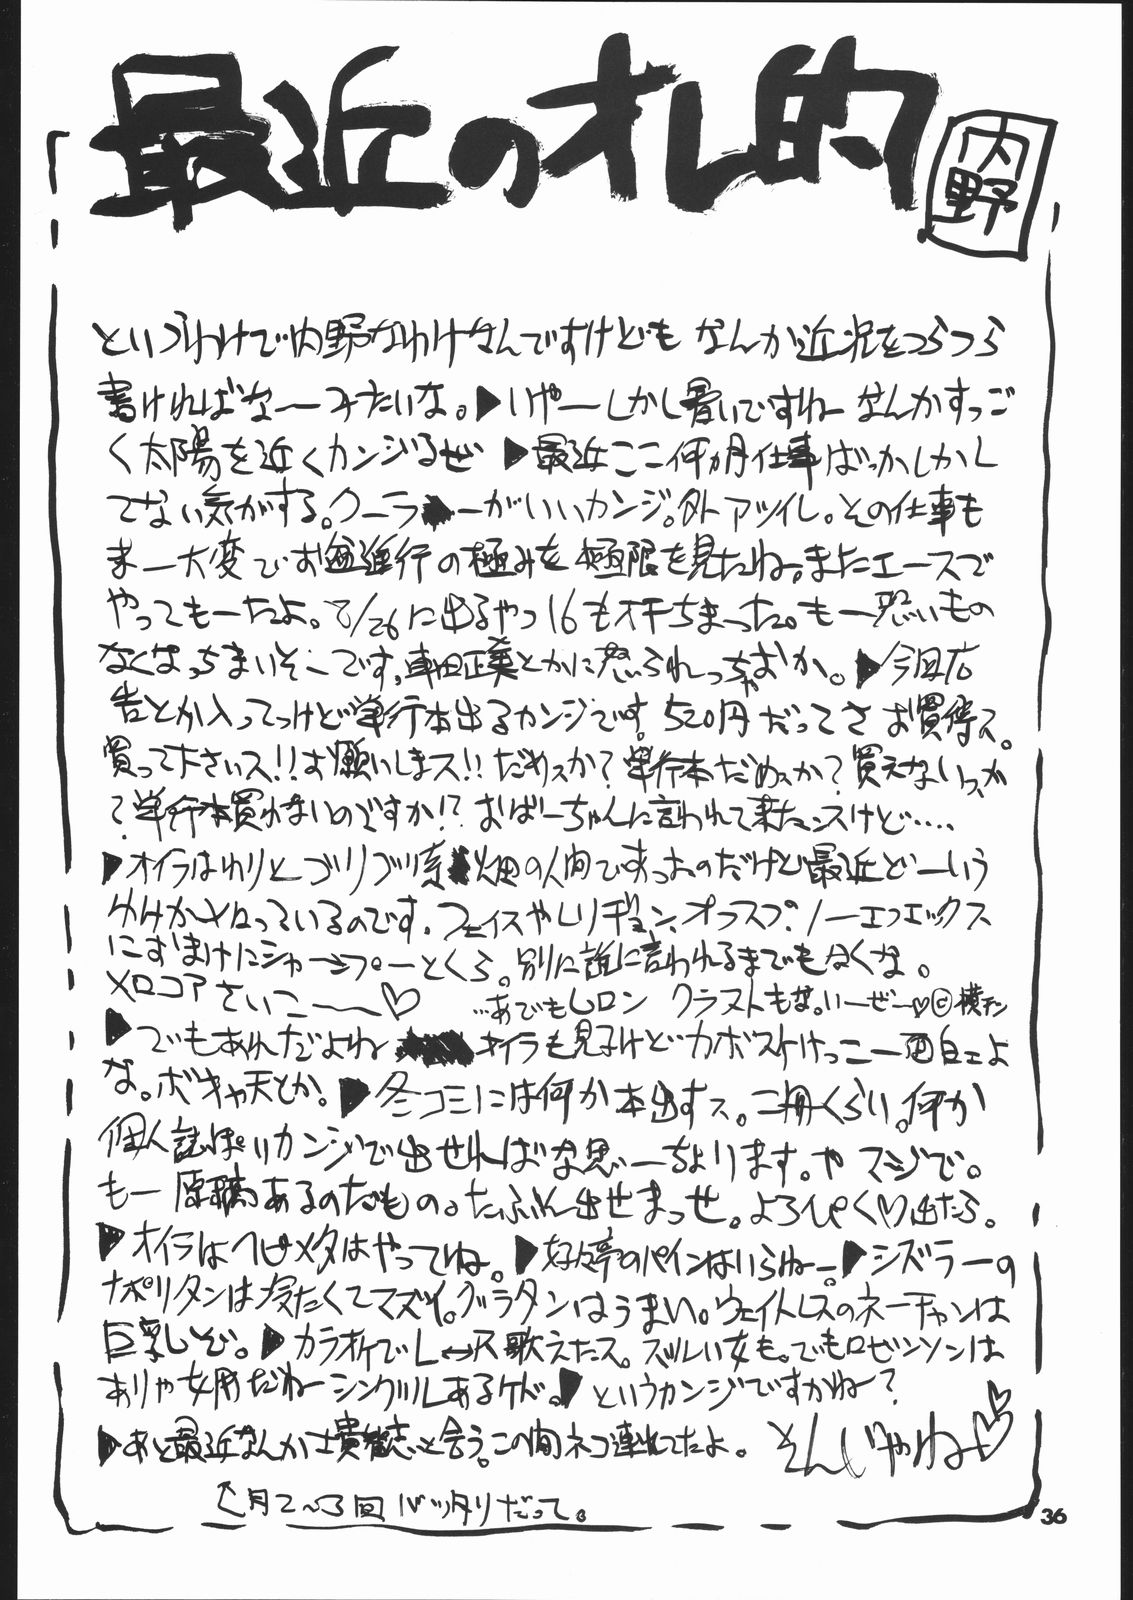 最近のオレ的
内野
というわけで内野なわけなんですけども なんか近況をつらつら
書ければな〜みたいな。▶いやーしかし暑いですねー なんかすっご
く太陽を近くカンジるぜ ▶最近ここ何ヵ月仕事ばっかしかし
てない気がする。クーラーがいいカンジ。外アツイし。その仕事も
まー大変でさ 進行の極みを 極限を見たね。またエースで
やってもーたよ。8/26に出るやつ16もオチちまった。もー恐いもの
なくなっちまいそーです。車田正美とかに怒られっちゃおか。▶今回広
告とか入ってっけど単行本出るカンジです。520円だってさ お買得ス。
買って下さいス!!お願いしまス!!だめスか?単行本だめスか?買えないスか
?単行本買わないのですか!?おばーちゃんに言われて来たンスけど‥‥
▶オイラはわりとゴリゴリ系 畑の人間ですったのだけど最近どーいう
わけかメロっているのです。フェイスやレリジョン、オフスプ、ノーエフエックス
におまけにシャーシプーとくら。別に誰に言われるまでもなくな。
メロコアさいこ〜〜♡ …あでもLロン クラストもな。いーぜー♡©横チン
▶でもあれだよね オイラも見る けどカボスけっこー面白ェよ
な。ボキャ天とか。▶冬コミには何か本出すス。二冊くらい。何か
個人誌ぽいカンジで出せればな思ーちょります。や マジで。
もー原稿あるのだもの。たぶん出せまっせ。よろぴく♡出たら。
▶オイラはヘビメタはやってね。▶好々亭のパインはいらねー。▶シズラーの
ナポリタンは冷たくてマズイ。グラタンはうまい。ウェイトレスのネーチャンは
巨乳しぞ。▶カラオケでL⇔R歌えたス。ズルい女も。でもロビンソンは
ありゃ女用だねーシングルあるケド。▶というカンジですかねー?
▶あと最近なんか士貴智志と会う。この間ネコ連れてたよ。 そんじゃね〜♡
↖月2〜3回バッタリだって。
36